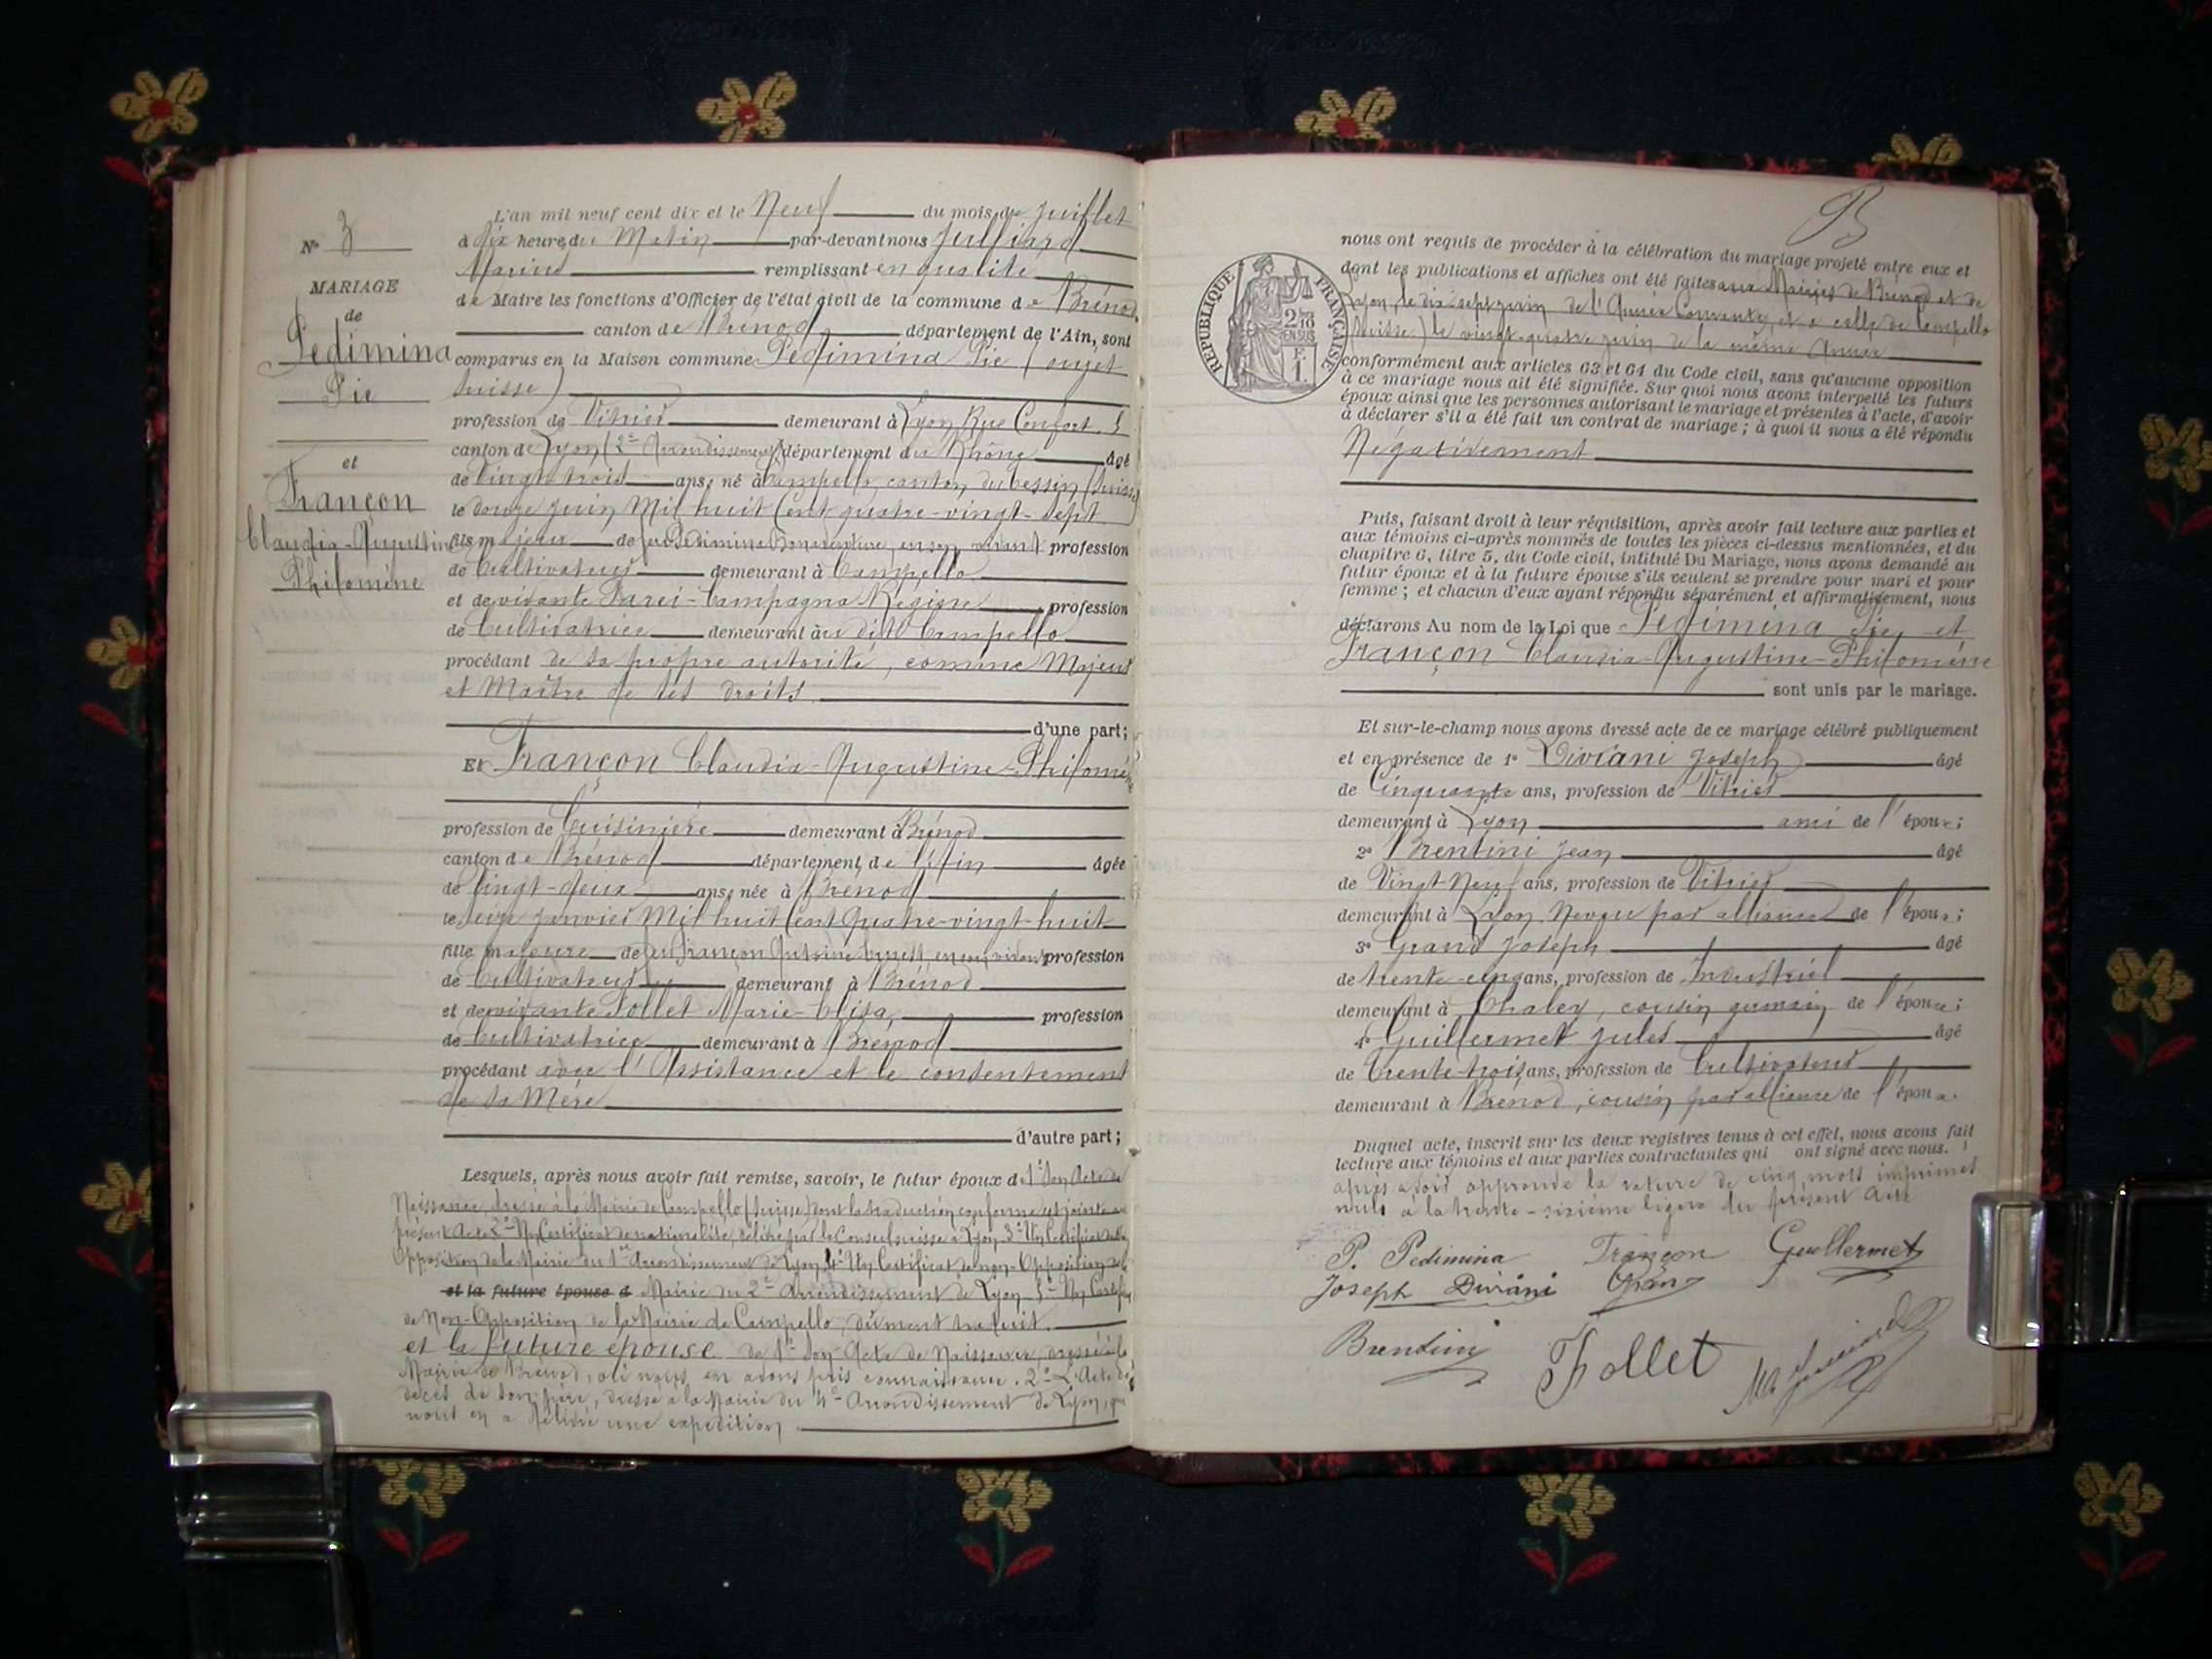 N° 3
MARIAGE
de
Pedimina
Pie
et
Françon
Claudia-Augustine
Philomène
L'an mil neuf cent dix et le Neuf du mois de Juillet
à dix heures du Matin par-devant nous Julliard
Marius remplissant en qualité
de Maire les fonctions d'Officier de l'état civil de la commune de Brénod
canton de Brénod, département de l'Ain, sont
comparus en la Maison commune Pedimina Pie (sujet
suisse)
profession de Vitrier demeurant à Lyon Rue Confort. 5
canton de Lyon (2e Arrondissement) département du Rhône âgé
de Vingt trois ans, né à Campello, canton du Tessin (Suisse)
le douze juin Mil huit Cent quatre-vingt-sept
fils majeur de feu Pedimina Bonaventure, en son vivant profession
de Cultivateur demeurant à Campello
et de vivante Campagna Régine profession
de Cultivatrice demeurant au dit Campello
procédant de sa propre autorité, comme Majeur
et Maître de ses droits
d'une part;
Et Françon Claudia-Augustine-Philomène
profession de Cuisinière demeurant à Brénod
canton de Brénod département de l'Ain âgée
de Vingt-deux ans, née à Brénod
le seize janvier Mil huit Cent Quatre-vingt-huit
fille majeure de feu Françon Antoine en son vivant profession
de Cultivateur demeurant à Brénod
et de vivante Follet Marie-Elisa, profession
de Cultivatrice demeurant à Brénod
procédant avec l'Assistance et le consentement
de sa Mère
d'autre part;
Lesquels, après nous avoir fait remise, savoir, le futur époux de 1° Son Acte de
Naissance, dressé à la Mairie de Campello (Suisse) dont la traduction conforme est jointe au
présent Acte 2° Un Certificat de nationalité, délivré par le Consul suisse à Lyon. 3° Un Certificat de
Opposition de la Mairie du 1er Arrondissement de Lyon, 4° Un Certificat de non-Opposition de la
et la future épouse d Mairie du 2e Arrondissement de Lyon 5° Un Certificat
de Non-Opposition de la Mairie de Campello, dûment traduit.
et la future épouse de 1° Son Acte de Naissance, dressé à la
Mairie de Brénod, où nous en avons pris connaissance. 2° L'Acte de
décès de son père, dressé à la Mairie du 4e Arrondissement de Lyon, qui
nous en a délivré une expédition
RÉPUBLIQUE FRANÇAISE
2/10
EN SUS
F.
1.
nous ont requis de procéder à la célébration du mariage projeté entre eux et
dont les publications et affiches ont été faites aux Mairies de Brénod et de
Lyon, le dix-sept juin de l'Année Courante, et à celle de Campello
(Suisse) le vingt-quatre juin de la même Année
conformément aux articles 63 et 64 du Code civil, sans qu'aucune opposition
à ce mariage nous ait été signifiée. Sur quoi nous avons interpellé les futurs
époux ainsi que les personnes autorisant le mariage et présentes à l'acte, d'avoir
à déclarer s'il a été fait un contrat de mariage; à quoi il nous a été répondu
Négativement
Puis, faisant droit à leur réquisition, après avoir fait lecture aux parties et
aux témoins ci-après nommés de toutes les pièces ci-dessus mentionnées, et du
chapitre 6, titre 5, du Code civil, intitulé Du Mariage, nous avons demandé au
futur époux et à la future épouse s'ils veulent se prendre pour mari et pour
femme; et chacun d'eux ayant répondu séparément et affirmativement, nous
déclarons Au nom de la Loi que Pedimina Pie, et
Françon Claudia-Augustine-Philomène
sont unis par le mariage.
Et sur-le-champ nous avons dressé acte de ce mariage célébré publiquement
et en présence de 1° Diviani Joseph âgé
de Cinquante ans, profession de Vitrier
demeurant à Lyon ami de l'époux;
2° Brentini Jean âgé
de Vingt-Neuf ans, profession de Vitrier
demeurant à Lyon, Neveu par alliance de l'époux;
3° Grand Joseph âgé
de trente-cinq ans, profession de Industriel
demeurant à Chaley, cousin germain de l'épouse;
4° Guillermet Jules âgé
de Trente-trois ans, profession de Cultivateur
demeurant à Brénod, cousin par alliance de l'épouse
Duquel acte, inscrit sur les deux registres tenus à cet effet, nous avons fait
lecture aux témoins et aux parties contractantes qui ont signé avec nous.
après avoir approuvé la rature de cinq mots imprimés
nuls à la trente-sixième ligne du présent Acte
P. Pedimina Françon Guillermet
Joseph Diviani Grand
Brentini Follet